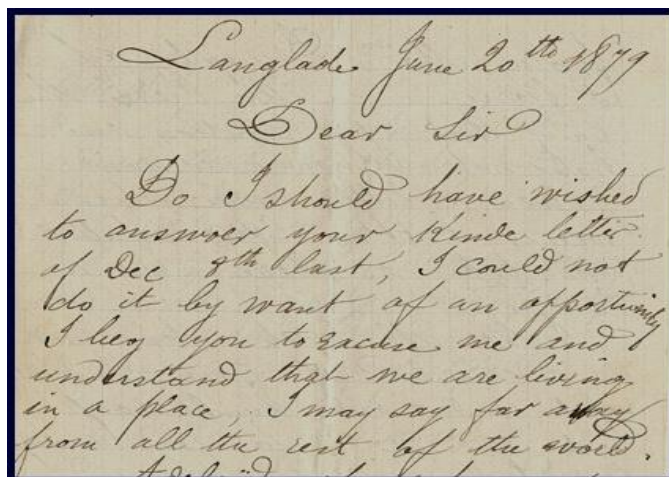 Langlade June 20th 1879
Dear Sir
Do I should have wished
to answoer your Kinde letter.
of Dec 8th last, I could not
do it by want of an opportunity
I beg you to Excuse me and
understand that we are living
in a place, I may say far away
from all the rest of the world.